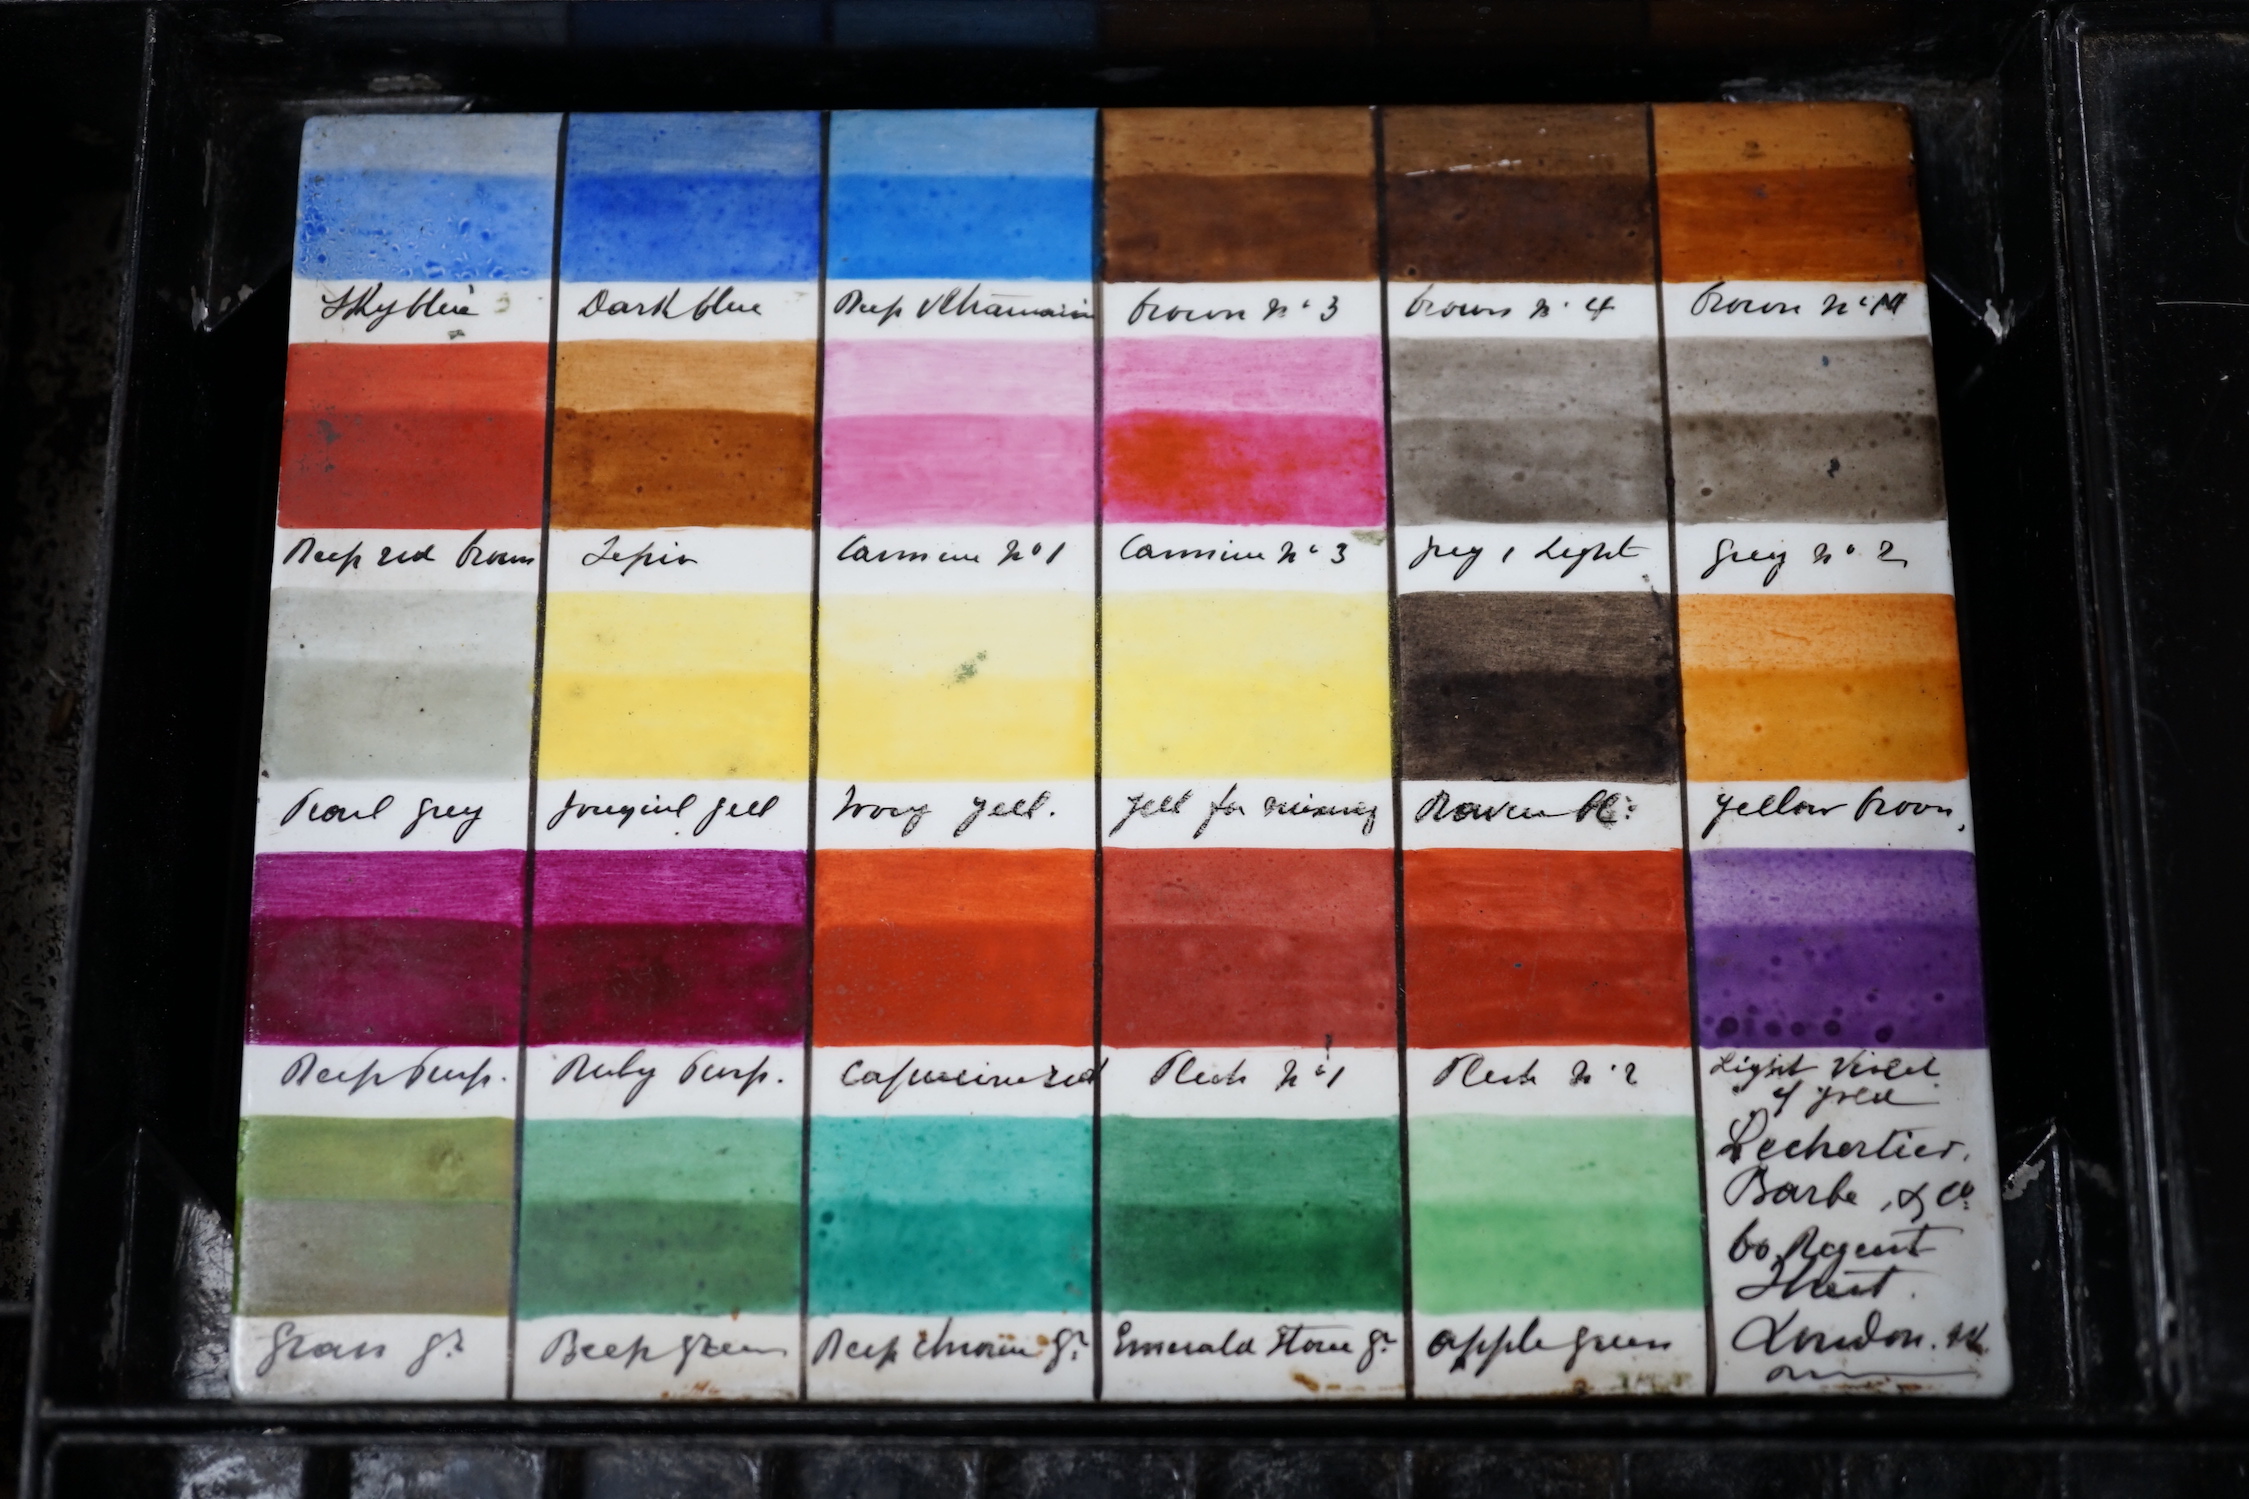 Sky blue
Dark blue
Deep Ultramarin
brown No 3
brown No 4
brown No
Deep red brown
Sepia
Carmine No 1
Carmine No 3
grey 1 Light
grey No 2
Pearl grey
yell
Ivory yell.
yell for mixing
Raven Bl:
yellow brown,
Deep Purp.
Ruby Purp.
Capucine red
Flesh No 1
Flesh No 2
Light Violet
of gold
Grass gr
Deep green
Deep Chrome gr
Emerald Stone gr
apple green
Lechertier,
Barbe, & Co
60, Regent
Street.
London. W.